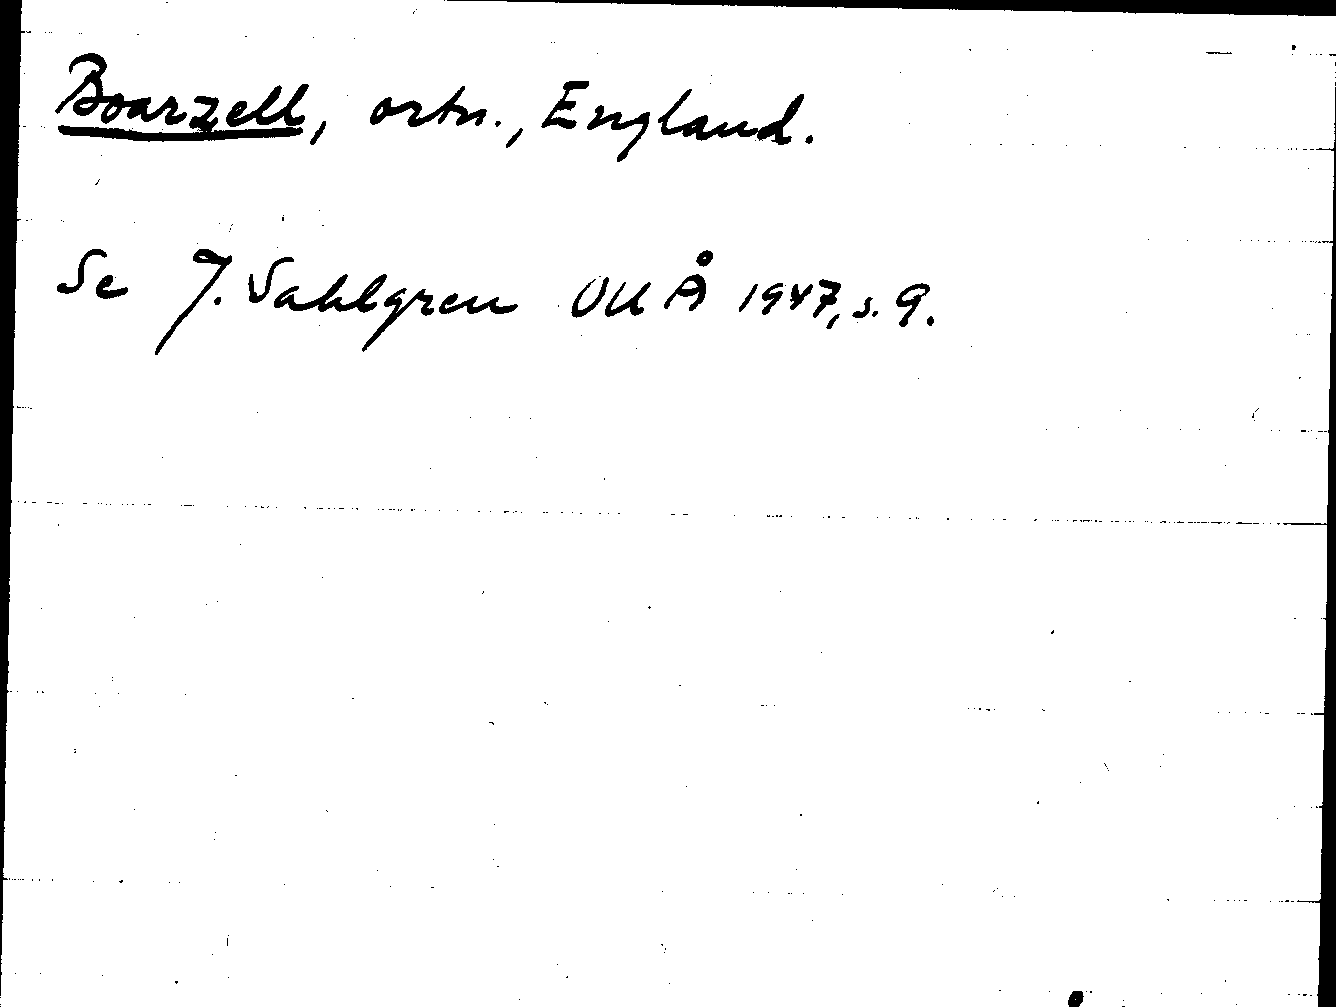 Boarzell, ortn., England.
Se J. Sahlgren UUÅ 1947, s. 9.